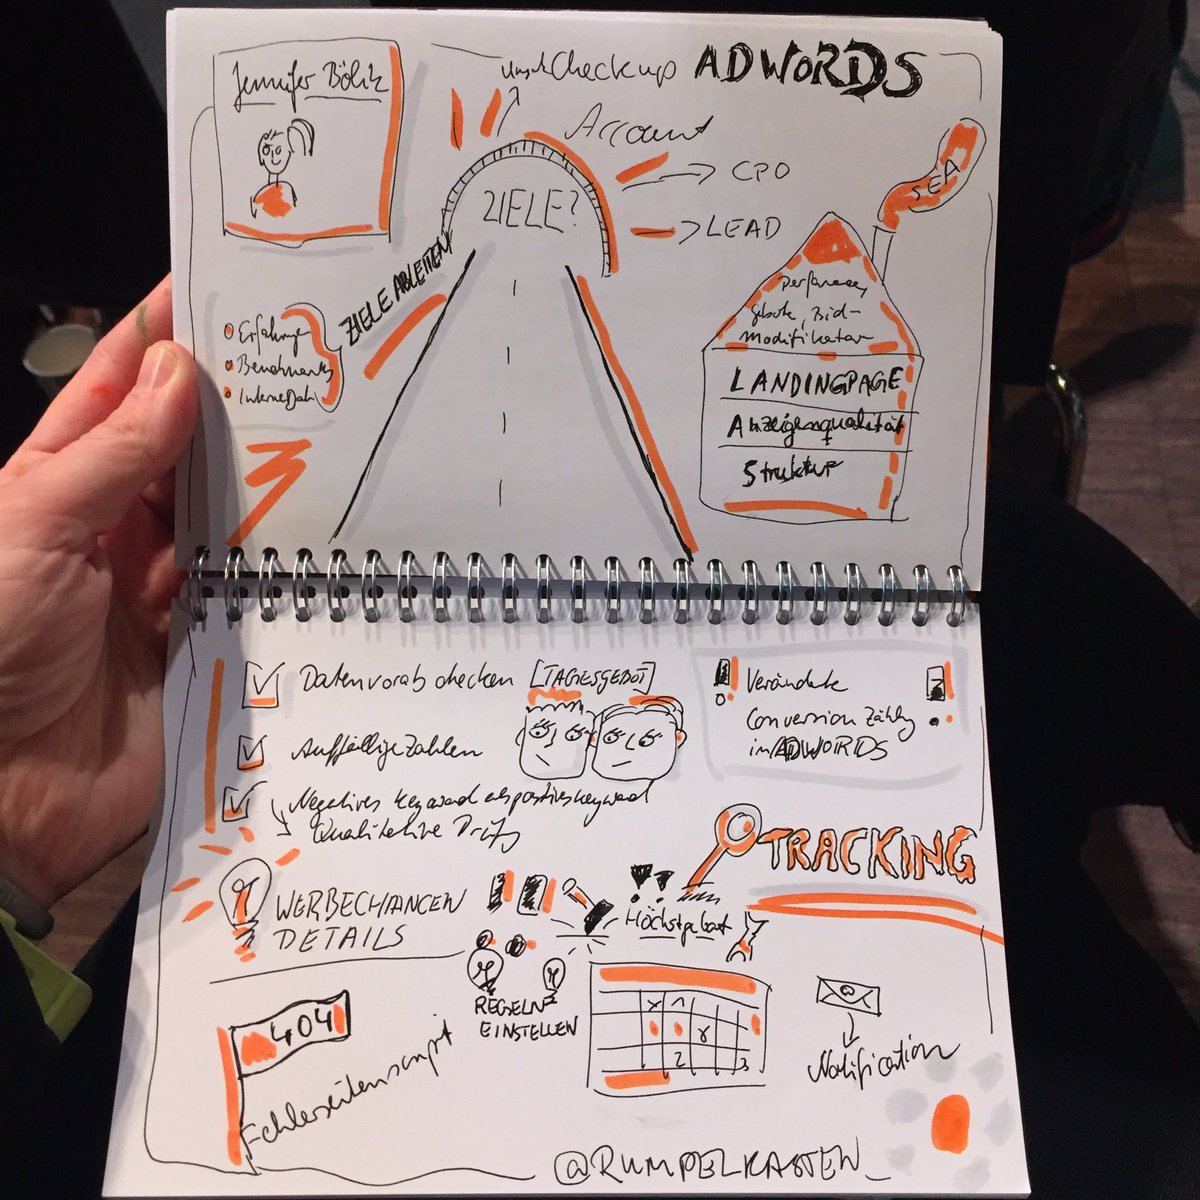 Jennifer Bölitz
Checkup ADWORDS
Account
ZIELE?
CPO
LEAD
SEA
ZIELE ABLEITEN
Erfahrung
Benchmarks
Performance,
Gebote, Bid-
Modifikator
LANDINGPAGE
Anzeigenqualität
Struktur
Daten vorab checken [TAGESGEBOT]
Auffällige Zahlen
Negatives Keyword als positives Keyword
Qualitative
Veränderte
Conversion Zählg
in ADWORDS
TRACKING
WERBECHANCEN
DETAILS
Höchstgebot
REGELN
EINSTELLEN
404
Fehlerseitenscript
2
3
Notification
@RUMPELKASTEN_